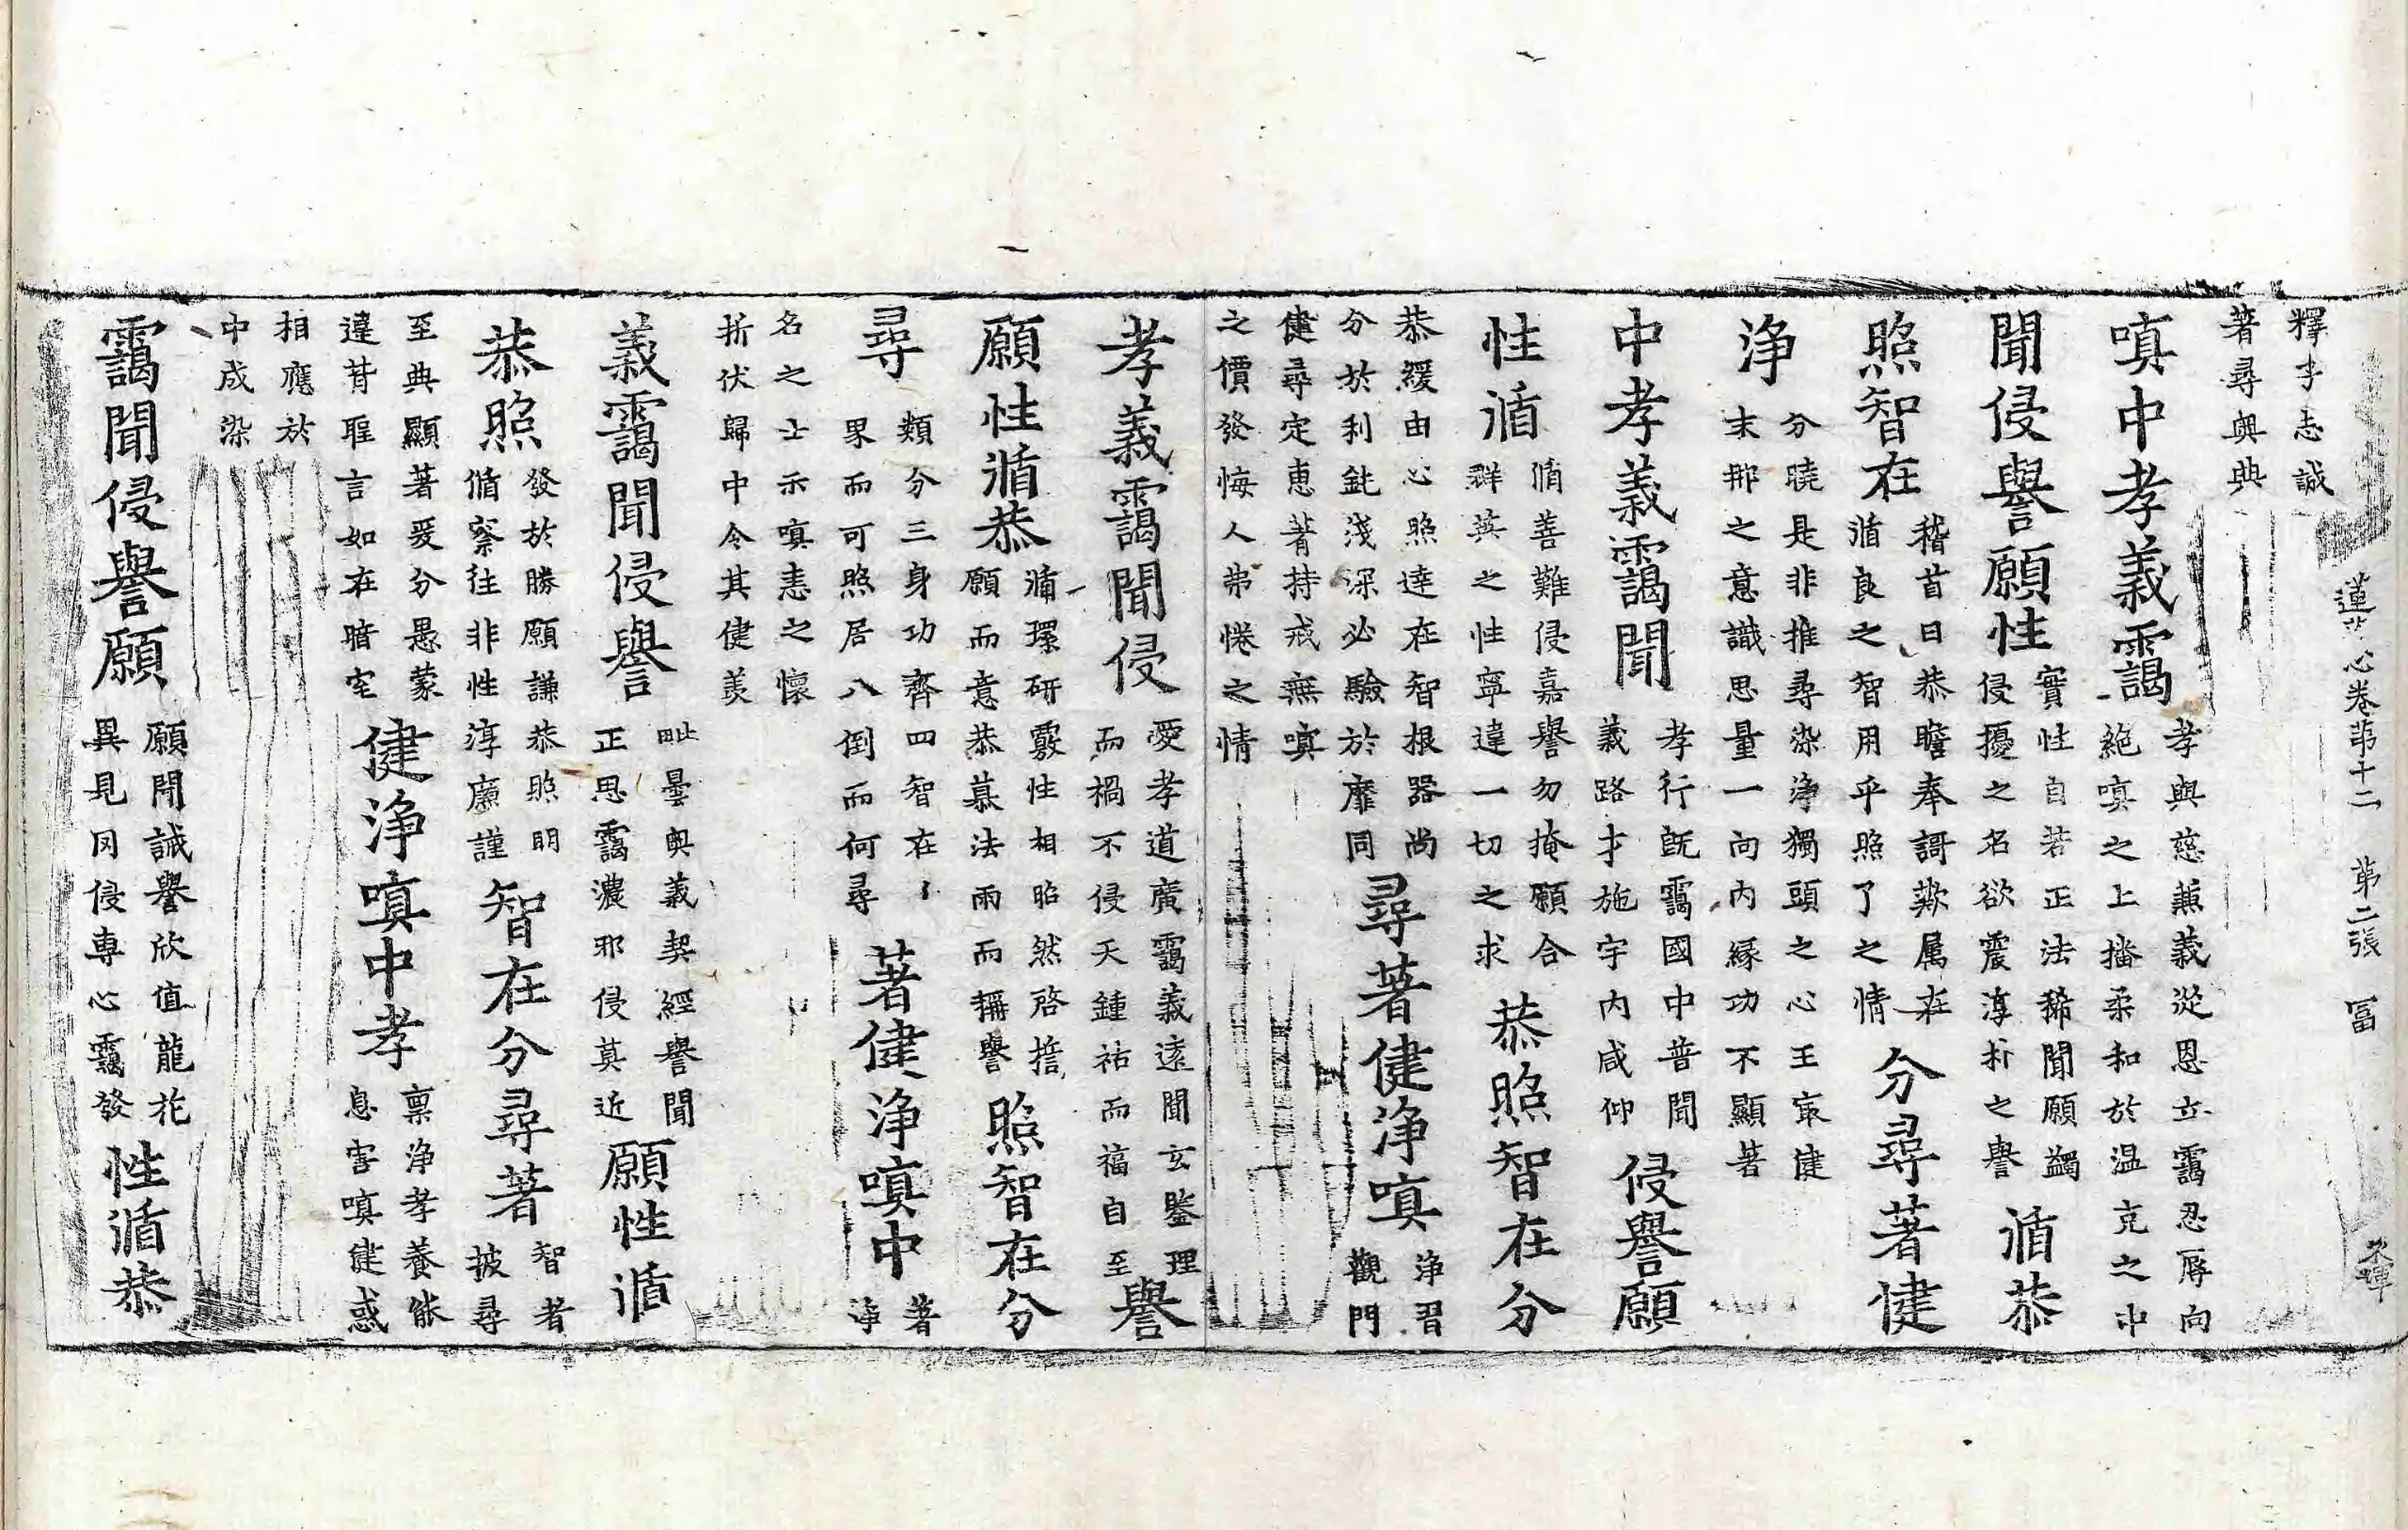 蓮花心卷苐十二 第二張 冨
釋才志誠
著尋奥典
嗔中孝義靄
孝與慈兼義従恩立靄忍辱向
絶嗔之上播柔和於温克之中
聞侵譽願性
實性自若正法稀聞願蠲
侵擾之名欲震淳朴之譽
循恭
照智在
稽首曰恭瞻奉謌歎属在
循良之智用乎照了之情
分尋著健
浄
分曉是非推尋染浄獨頭之心王㝡健
末那之意識思量一向内縁功不顯著
中孝義靄聞
孝行既靄國中普聞
義路才施宇内咸仰
侵譽願
性循
循善難侵嘉譽勿掩願合
群英之性寧違一切之求
恭照智在分
恭緩由心照達在智根器尚
分於利鈍淺深必驗於靡同
尋著健浄嗔
浄習
觀門
健尋定惠著持戒無嗔
之價發悔人弗惓之情
孝義靄聞侵
愛孝道廣靄義遠聞玄鑒理
而禍不侵天鍾祐而福自至
譽
願性循恭
循環研覈性相昭然啓擔
願而意恭慕法雨而稱譽
照智在分
尋
類分三身功齊四智在
界而可照居八倒而何尋
著健浄嗔中
著
浄
名之士示嗔恚之懷
折伏歸中令其健羙
義靄聞侵譽
毗曇奥義契經譽聞
正思靄濃邪侵莫近
願性循
恭照
發於勝願謙恭照明
循察往非性淳廉謹
智在分尋著
智者
披尋
至典顯著爰分愚蒙
違背聖言如在暗宅
健浄嗔中孝
禀浄孝養能
息害嗔健惑
相應於
中成染
靄聞侵譽願
願聞誠譽欣值龍花
異見罔侵専心靄發
性循恭